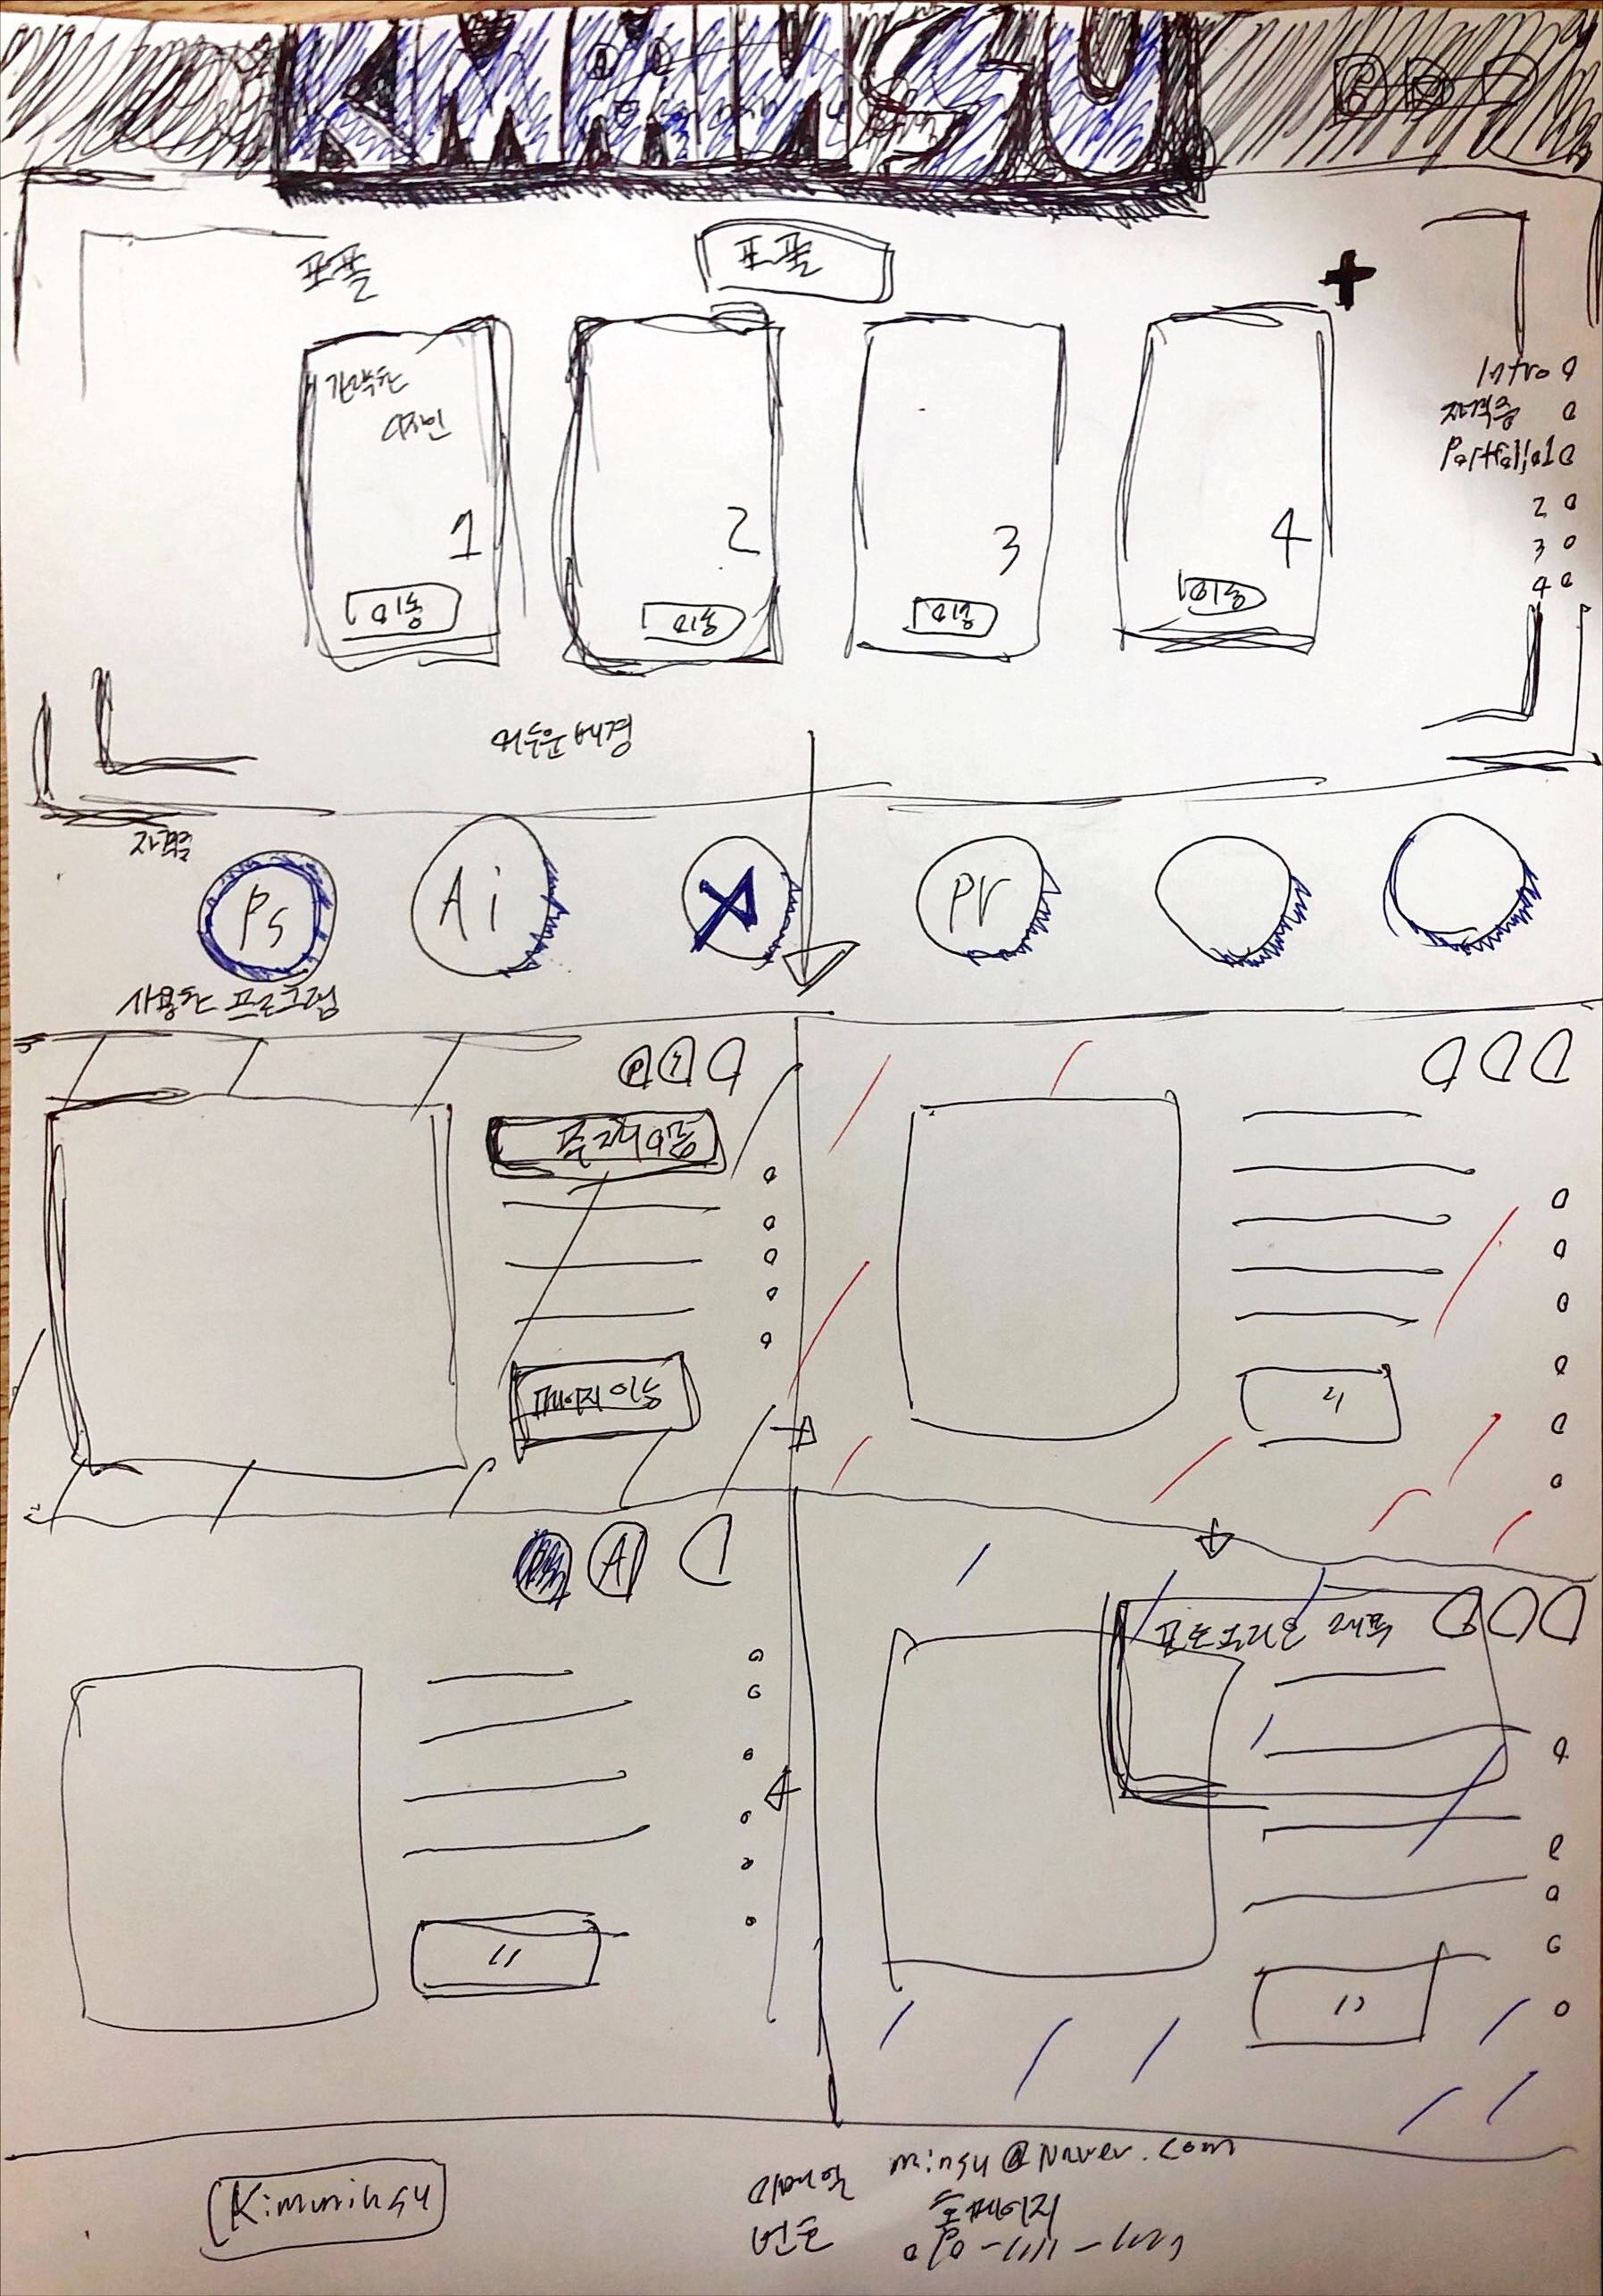 KIMMINSU
포폴
포폴
간략한
디자인
1
2
3
4
이동
이동
이동
이동
Intro
자격증
Portfolio1
2
3
4
어두운배경
자격증
Ps
Ai
Pr
사용한 프로그램
P
페이지이동
"
AI
포트폴리오 제목
"
"
Kimminsu
이메일 minsu@Naver.com
홈페이지
번호 010-1111-1111